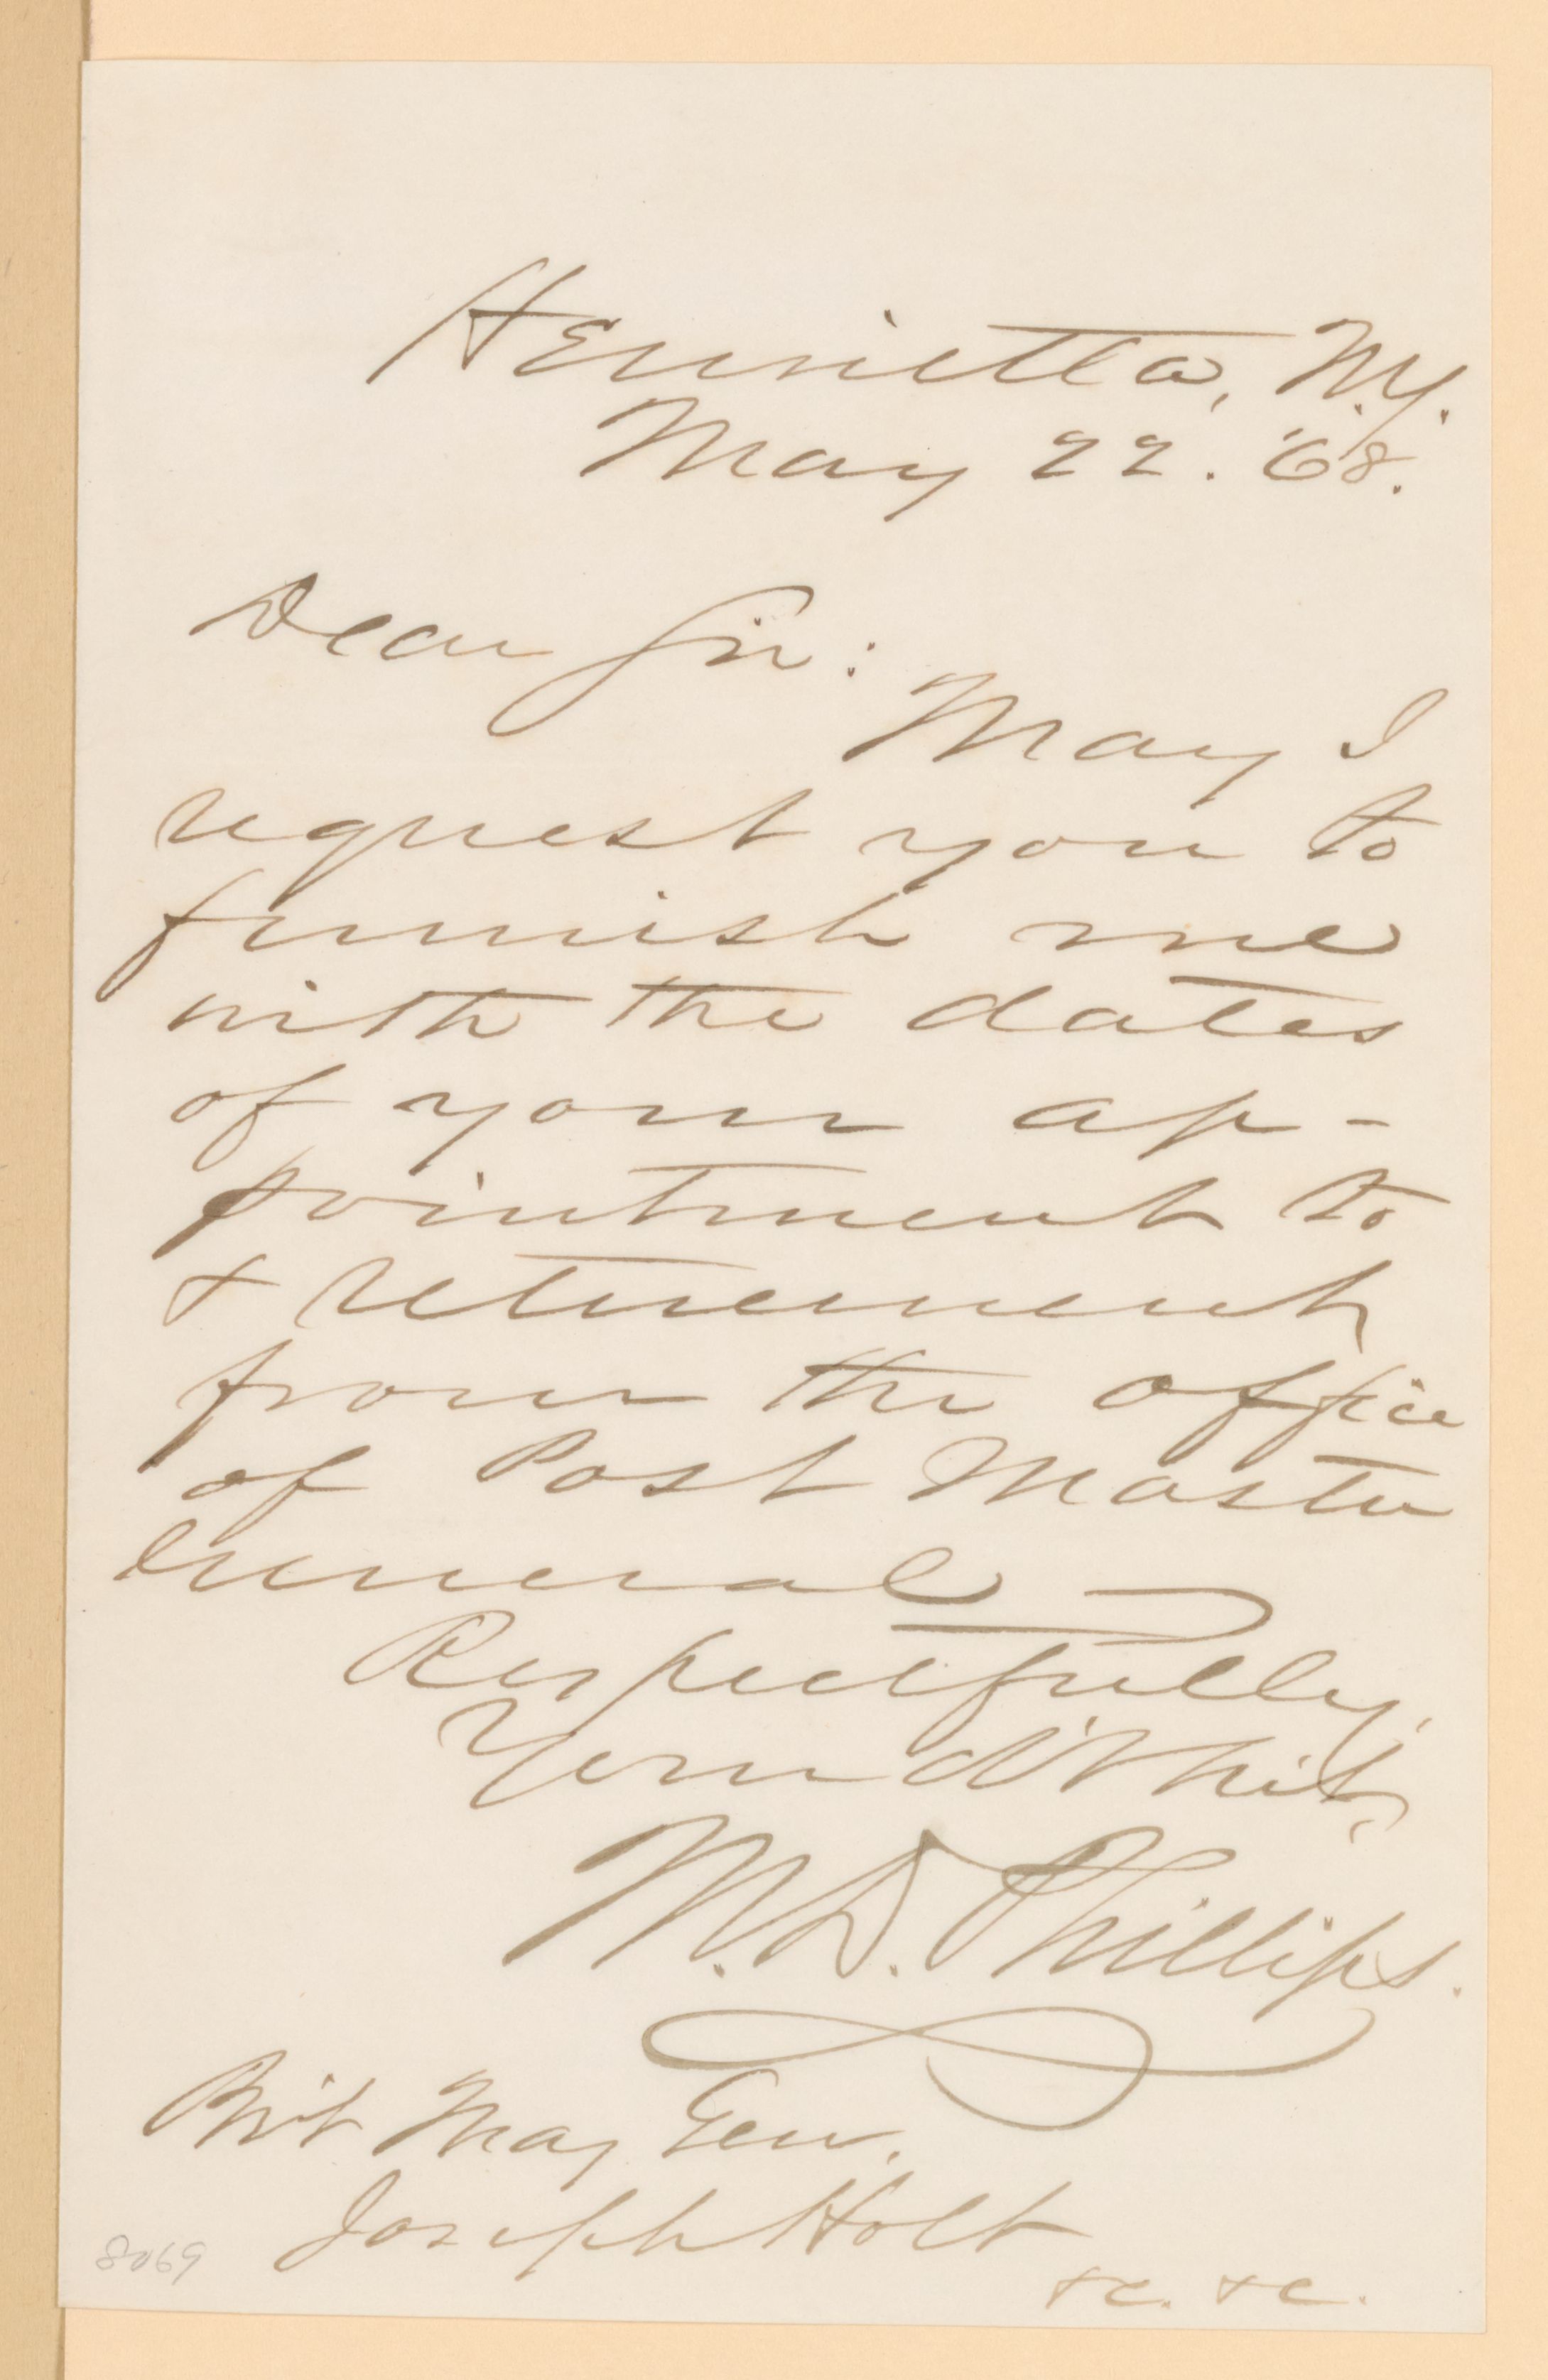 Henrietta, N.Y.
May 22. '68.
Dear Sir:
May I
request you to
furnish me
with the dates
of your ap-
pointment to
& retirement
from the office
of Post Master
General
Respectfully,
Your ob't
M. D. Phillips.
Bv't Maj Gen.
Joseph Holt
&c. &c.
8069